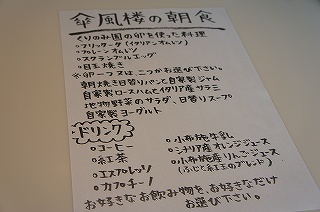 傘風楼の朝食
くりのみ園の卵を使った料理
◦フリッタータ(イタリアンオムレツ)
◦プレーンオムレツ
◦スクランブルエッグ
◦目玉焼き
※卵一つ又は、二つお選び下さい。
朝焼き日替りパンと自家製ジャム
自家製ロースハムとイタリア産サラミ
地物野菜のサラダ、日替りスープ
自家製ヨーグルト
ドリンク
◦コーヒー
◦紅茶
◦エスプレッソ
◦カプチーノ
◦小布施牛乳
◦シチリア産オレンジジュース
◦小布施産りんごジュース
(ふじと紅玉のブレンド)
お好きなお飲み物を、お好きなだけ
お選び下さい。